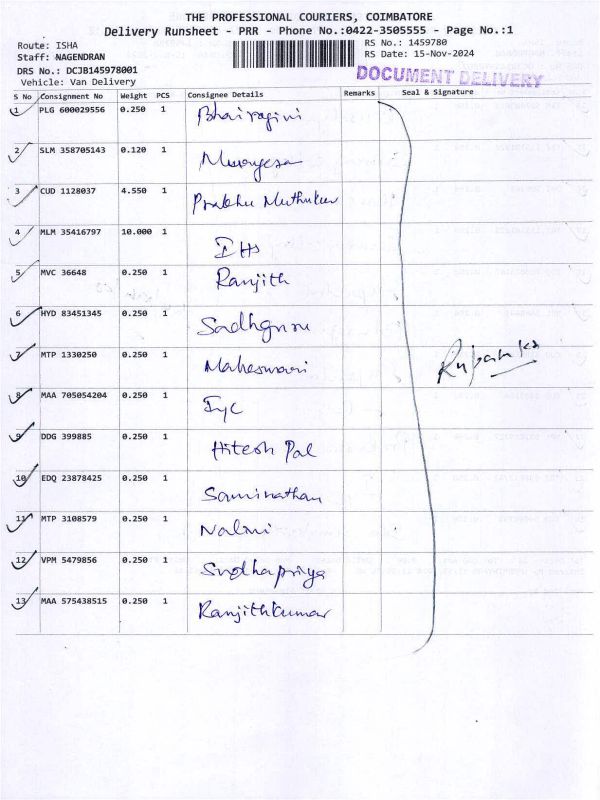 THE PROFESSIONAL COURIERS, COIMBATORE
Delivery Runsheet - PRR - Phone No.:0422-3505555 - Page No.:1
Route: ISHA
RS No.: 1459780
Staff: NAGENDRAN
RS Date: 15-Nov-2024
DRS No.: DCJB145978001
DOCUMENT DELIVERY
Vehicle: Van Delivery
S No Consignment No Weight PCS Consignee Details Remarks Seal & Signature
1 PLG 600029556 0.250 1 Bhairagini
2 SLM 358705143 0.120 1 Murugesa
3 CUD 1128037 4.550 1 Prabhu Muthukur
4 MLM 35416797 10.000 1 IHS
5 MVC 36648 0.250 1 Ranjith
6 HYD 83451345 0.250 1 Sadhguru
7 MTP 1330250 0.250 1 Maheswari
8 MAA 705054204 0.250 1 IYC
9 DDG 399885 0.250 1 Hitesh Pal
10 EDQ 23878425 0.250 1 Saminathan
11 MTP 3108579 0.250 1 Nalini
12 VPM 5479856 0.250 1 Sudhapriya
13 MAA 575438515 0.250 1 Ranjithkumar